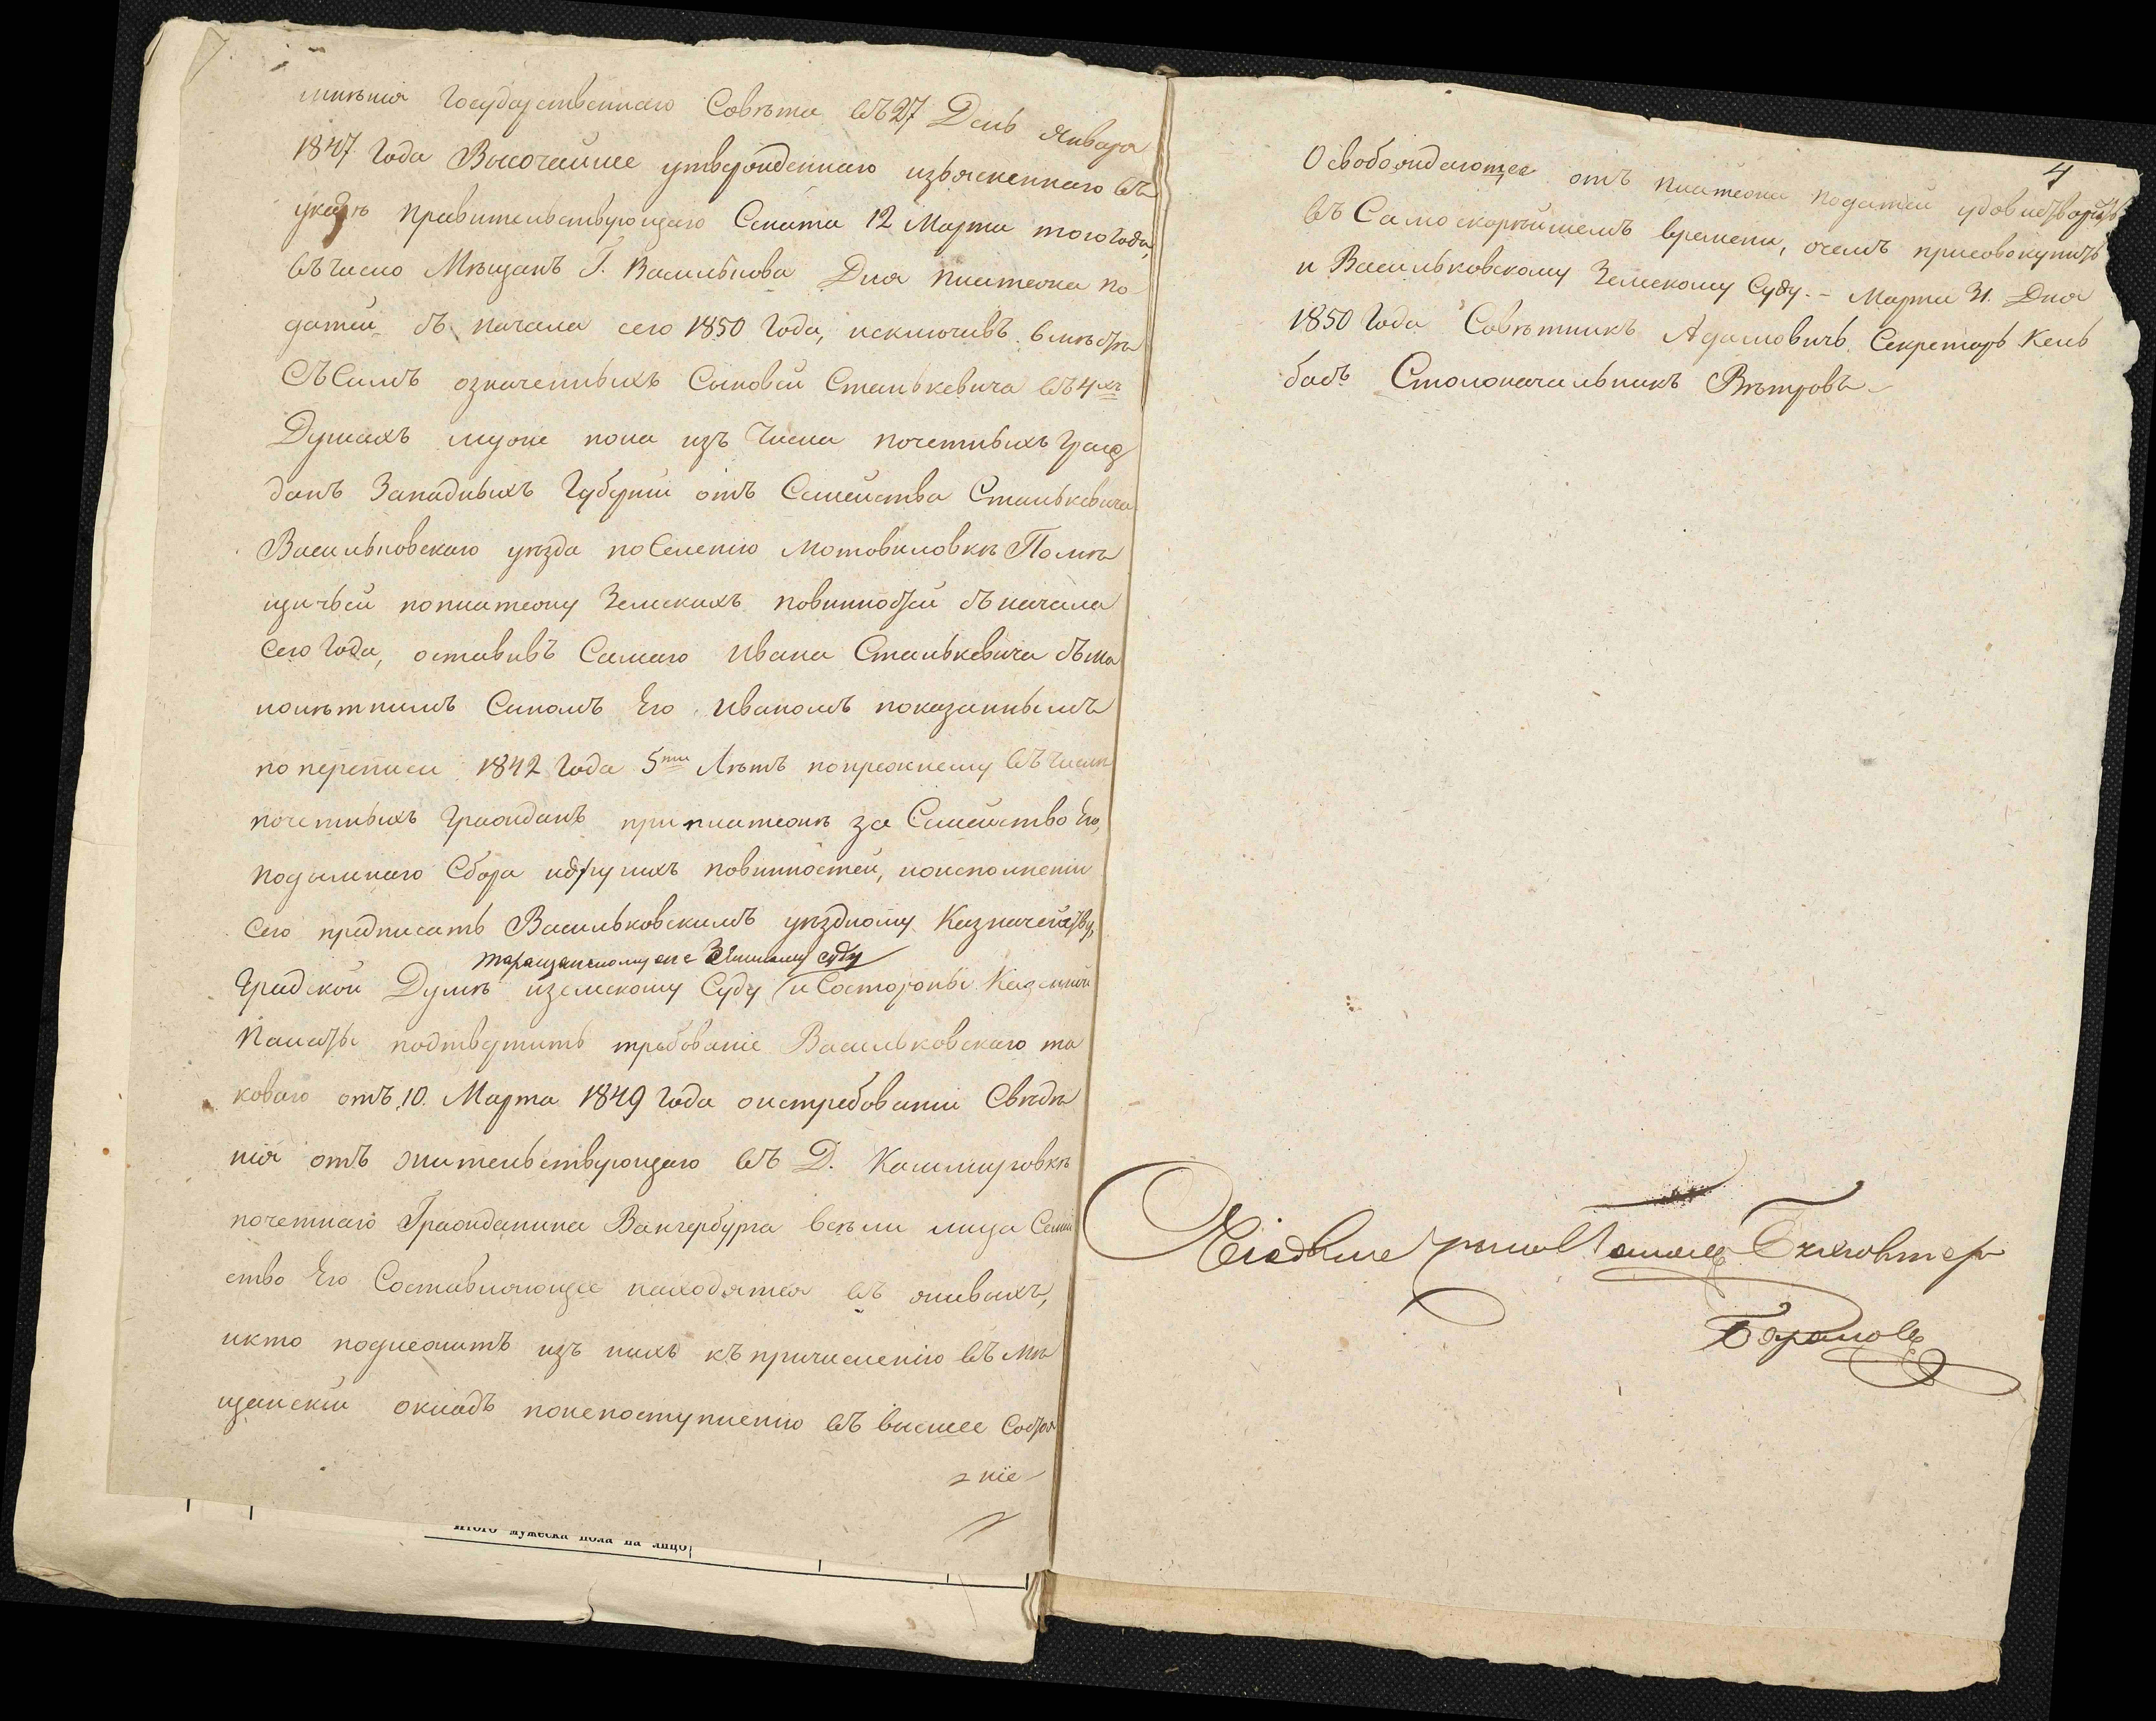 мнѣнія Государственнаго Совѣта въ 27 День Января
1847 Года Высочайше утвержденнаго изъясненнаго въ
указѣ правительствующаго Сената 12 Марта того года,
въ число Мѣщанъ Г. Василькова Для платежа по
датей съ начала сего 1850 Года, исключивъ вмѣстѣ
съ Симъ означенныхъ Сыновей Станькевича въ 4хъ
Душахъ муже пола изъ Числа почетныхъ Граж
данъ Западныхъ Губерній отъ Семейства Станькевича
Васильковскаго уѣзда поселенію Мотовиловкѣ Помѣ
щичьей поплатежу Земскихъ повинностей съ начала
сего Года, оставивъ Самаго Ивана Станькевича съ ма
лолѣтнимъ Сыномъ Его Иваномъ показаннымъ
по переписи 1842 Года 5ти Лѣтъ попрежнему въ Числѣ
почетныхъ Гражданъ при платежѣ за Семейство Его,
подымнаго Сбора идругихъ повинностей, поисполненіи
сего предписать Васильковскимъ уѣздному Казначейству,
Таращанскому же Земскому суду
Градской Думѣ иземскому Суду и Состороны Казенной
Палаты подтвердить требованіе Васильковскаго та
коваго отъ 10. Марта 1849 Года оистребованіи Свѣдѣ
нія отъ жительствующаго въ Д. Кашмировкѣ
почетнаго Гражданина Вангербурга всѣ ли лица Семей
ство Его Составляющее находятся въ живыхъ,
икто подлежитъ изъ нихъ къ причисленію въ Мѣ
щанскій окладъ понепоступленію въ высшее Состоя
ніе
4
Освобождающее отъ платежа податей удовлетворить
въ Самоскорѣйшемъ времени, очемъ присовокупить
и Васильковскому Земскому Суду. – Марта 31. Дня
1850 Года Совѣтникъ Адамовичъ Секретарь Кель
басъ Столоначальникъ Вѣтровъ
Бухгалтеръ
Барановъ
Итого мужеска пола на лицо